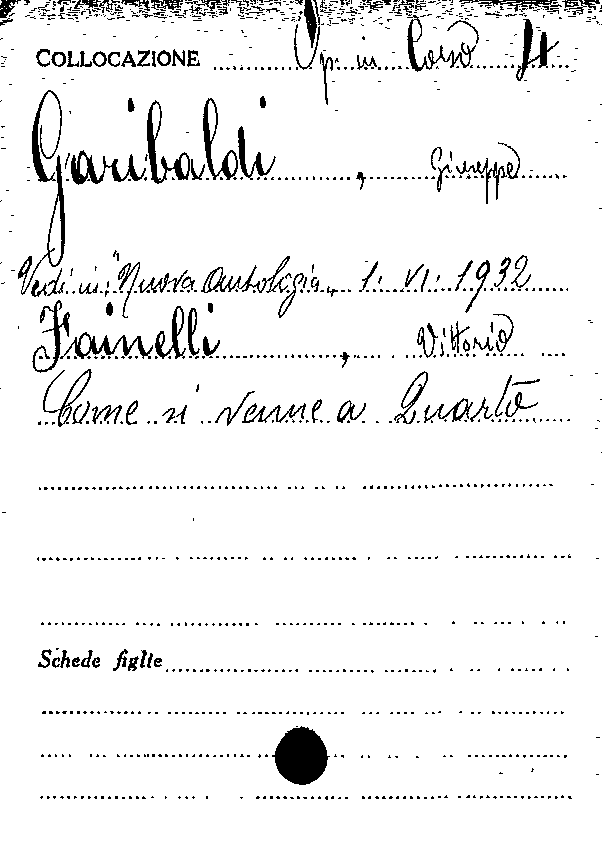 COLLOCAZIONE Op. in Corso 4
Garibaldi, Giuseppe
Vedi in: "Nuova Antologia„ 1. VI. 1932
Fainelli, Vittorio
Come si venne a Quarto
Schede figlie